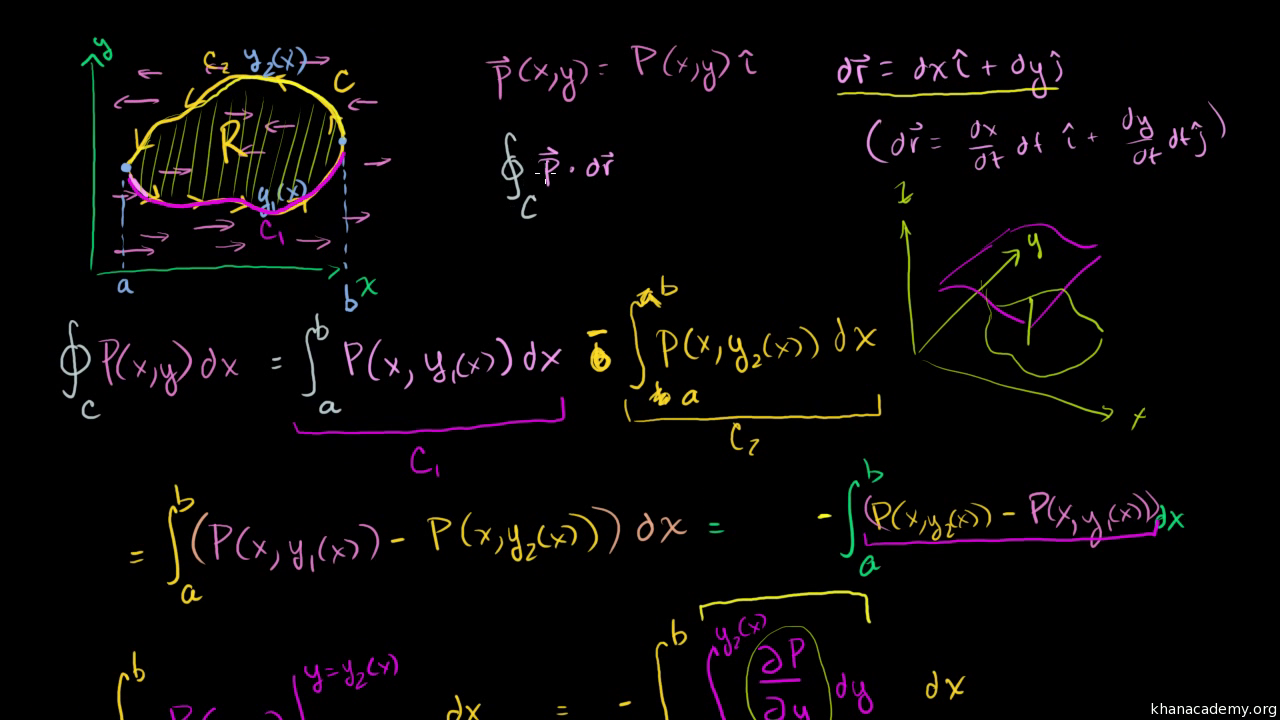 y
C₂ y₂(x)
C
R
y₁(x)
C₁
a
b
x
P⃗(x,y) = P(x,y) î
dr⃗ = dx î + dy ĵ
(dr⃗ = dx/dt dt î + dy/dt dt ĵ)
∮_C P⃗ · dr⃗
z
y
x
∮_C P(x,y) dx = ∫_a^b P(x, y₁(x)) dx − ∫_a^b P(x, y₂(x)) dx
C₁
C₂
= ∫_a^b (P(x, y₁(x)) − P(x, y₂(x))) dx = − ∫_a^b (P(x, y₂(x)) − P(x, y₁(x))) dx
b y=y₂(x) dx = − ∫^b ∫^{y₂(x)} ∂P/∂y dy dx
khanacademy.org